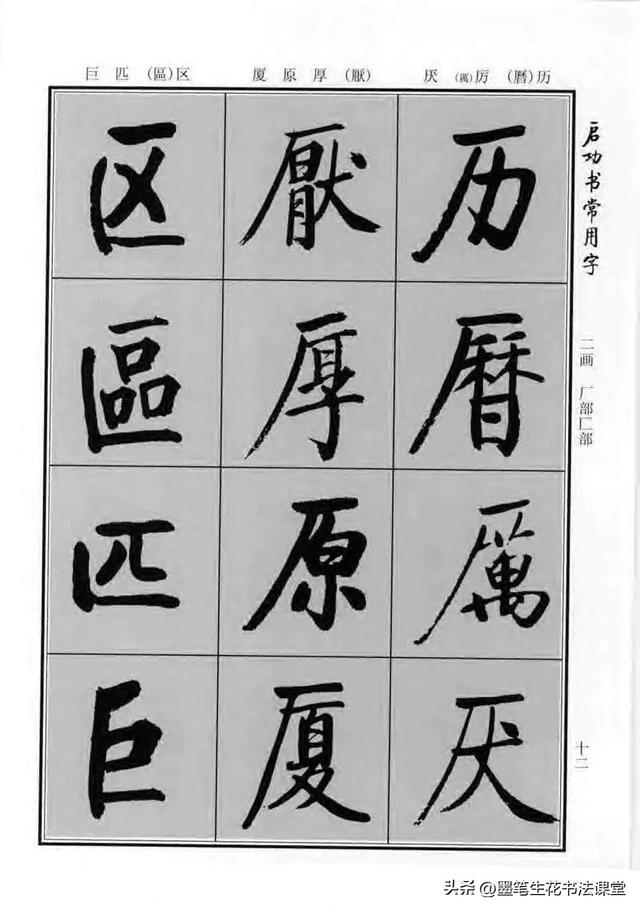 启功书常用字
二画 厂部匚部
十二
历（曆）厉（厲）厌
（厭）厚 原 厦
区（區）匹 巨
历曆厲厌
厭厚原厦
区區匹巨
头条 @墨笔生花书法课堂